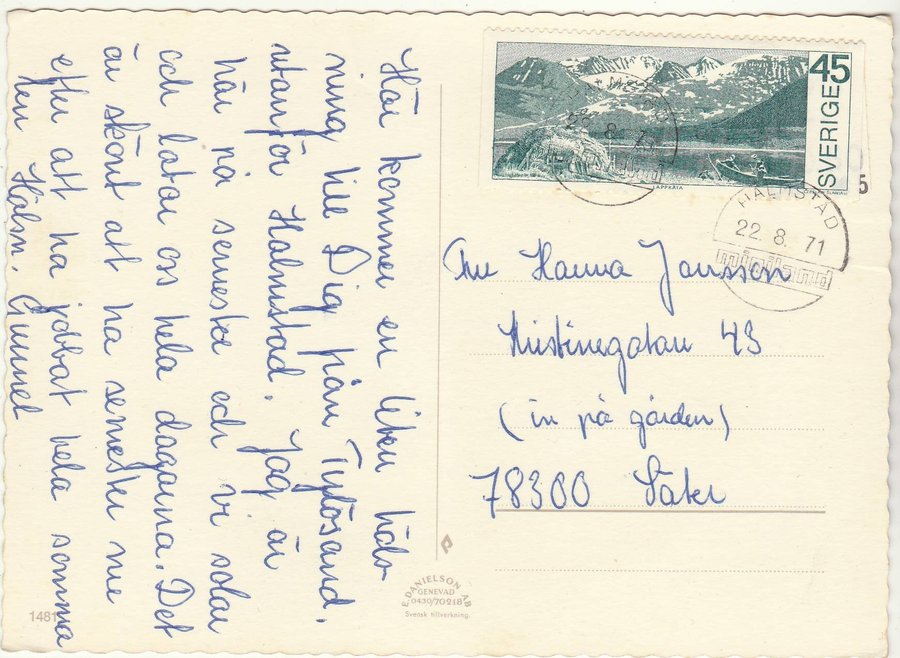 Här kommer en liten häls-
ning till Dig från Tylösand,
utanför Halmstad. Jag är
här på semester och vi solar
och latar oss hela dagarna. Det
är skönt att ha semester nu
efter att ha jobbat hela somma
ren. Hälsn. Gunnel
SVERIGE 45
LAPPKÅTA
HALMSTAD
22. 8. 71
miniland
5
Fru Hanna Jansson
Kristinegatan 43
(in på gården)
78300 Säter
E. DANIELSON AB
GENEVAD
0430/70218
Svensk tillverkning.
1481